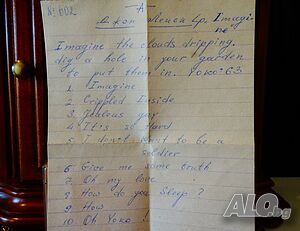 № 602
A
Imagi-
ne
Imagine the clouds dripping.
dig a hole in your garden
to put them in. Yoko '63
1. Imagine
2. Crippled Inside
3. Jealous guy
4. It's so Hard
5. I don't want to be a
soldier
6 Give me some truth
7. Oh my love
8. How do you Sleep ?
9 How
10. Oh Yoko !
ALO.bg